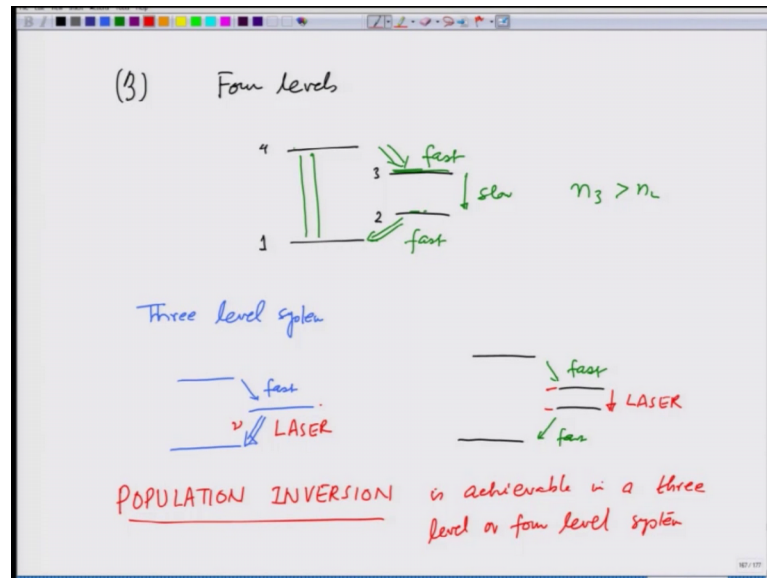 (3) Four levels
4
fast
3
slow
n₃ > n₂
2
1
fast
Three level system
fast
ν LASER
fast
LASER
fast
POPULATION INVERSION is achievable in a three
level or four level system
167 / 177